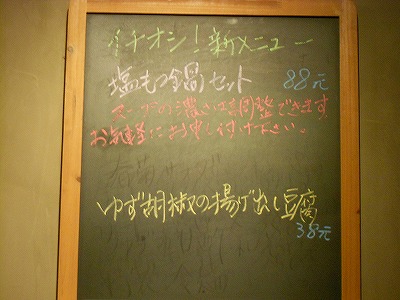 イチオシ!新メニュー
塩もつ鍋セット 88元
スープの濃さは調整できます。
お気軽にお申し付け下さい。
ゆず胡椒の揚げ出し豆腐
38元